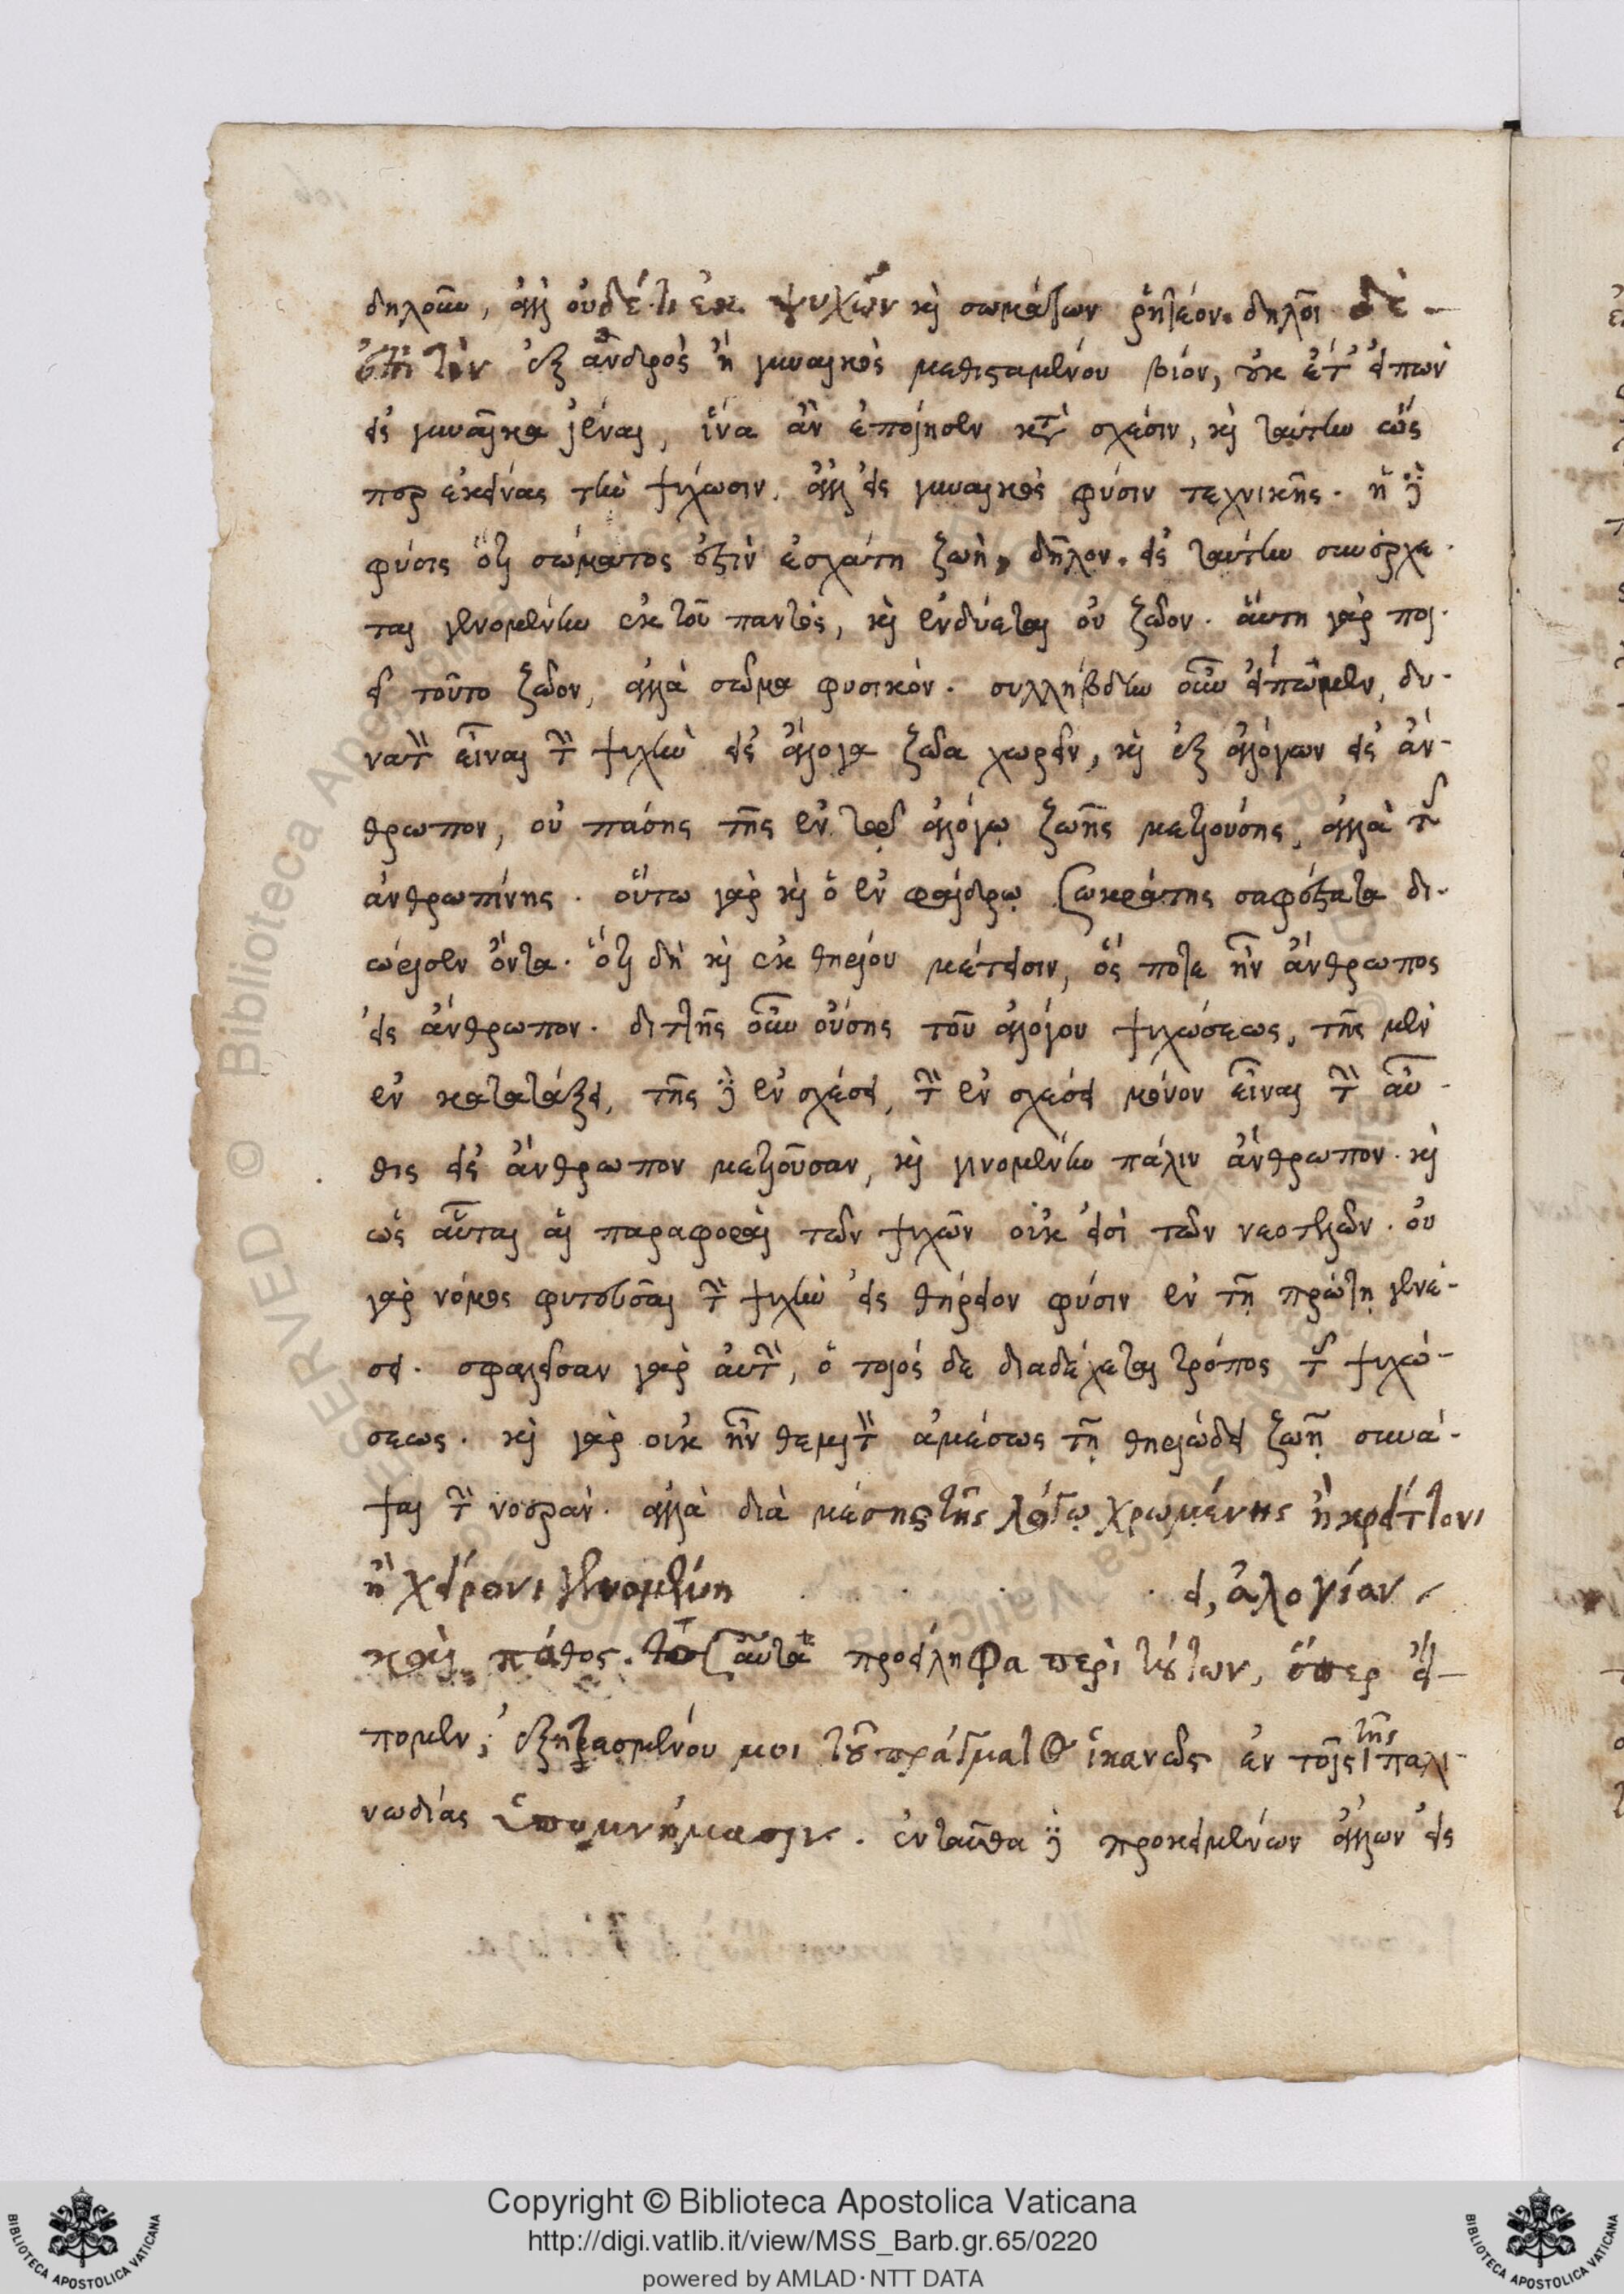 δηλοῦν, ἀλλ' οὐδέ τι ἐκ ψυχῶν καὶ σωμάτων ῥητέον. δηλοῖ δὲ
ἐπὶ τὴν ἐξ ἀνδρὸς ἢ γυναικὸς μεθισταμένου βίον, οὐκ ἔτ' εἰπὼν
εἰς γυναῖκα ἰέναι, ἵνα ἂν ἐποίησεν κατὰ σχέσιν, καὶ ταύτην ὥς
περ ἐκείνας τὴν ψύχωσιν. ἀλλ' εἰς γυναικὸς φύσιν τεχνικῆς. ἡ δὲ
φύσις ὅτι σώματος ἐστὶν ἐσχάτη ζωὴ, δῆλον. εἰς ταύτην συνέρχε
ται γενομένην ἐκ τοῦ παντὸς, καὶ ἐνδύεται οὐ ζῶον. αὕτη γὰρ ποι
εῖ τοῦτο ζῶον, ἀλλὰ σῶμα φυσικόν. συλλήβδην οὖν εἴπωμεν, δυ
νατὸν εἶναι τὴν ψυχὴν εἰς ἄλογα ζῶα χωρεῖν, καὶ ἐξ ἀλόγων εἰς ἄν
θρωπον, οὐ πάσης τῆς ἐν τῷ ἀλόγῳ ζωῆς μετιούσης, ἀλλὰ τῆς
ἀνθρωπίνης. οὕτω γὰρ καὶ ὁ ἐν φαίδρῳ Σωκράτης σαφέστατα δι
ώρισεν ὄντα. ὅτι δὴ καὶ ἐκ θηρίου μέτεισιν, ὅς ποτε ἦν ἄνθρωπος
εἰς ἄνθρωπον. διττῆς οὖν οὔσης τοῦ ἀλόγου ψυχώσεως, τῆς μὲν
ἐν κατατάξει, τῆς δὲ ἐν σχέσει, τὴν ἐν σχέσει μόνον εἶναι τὴν αὖ
θις εἰς ἄνθρωπον μετιοῦσαν, καὶ γινομένην πάλιν ἄνθρωπον. καὶ
ὡς αὗται αἱ παραφοραὶ τῶν ψυχῶν οὐκ εἰσὶ τῶν νεοτελῶν. οὐ
γὰρ νόμος φυτεῦσαι τὴν ψυχὴν εἰς θήρειον φύσιν ἐν τῇ πρώτῃ γενέ
σει. σφαλεῖσαν γὰρ αὐτὴν, ὁ τοιόσδε διαδέχεται τρόπος τῆς ψυχώ
σεως. καὶ γὰρ οὐκ ἦν θεμιτὸν ἀμέσως τῇ θηριώδει ζωῇ συνά
ψαι τὴν νοερὰν. ἀλλὰ διὰ μέσης τῆς λόγῳ χρωμένης ἢ κρείττονι
ἢ χείρονι γενομένη . . . . ει, ἀλογίαν
καὶ πάθος. τοσαῦτα προείληφα περὶ τούτων, ὅπερ εἴ
πομεν, ἐξητασμένου μοι τοῦ πράγματος ἱκανῶς ἐν τοῖς τῆς παλι
νωδίας ὑπομνήμασιν. ἐνταῦθα δὲ προκειμένων ἄλλων εἰς
Copyright © Biblioteca Apostolica Vaticana
http://digi.vatlib.it/view/MSS_Barb.gr.65/0220
powered by AMLAD · NTT DATA